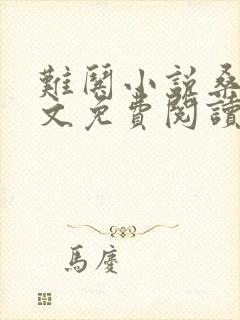 難關小說桑
文免費閱讀
馬慶